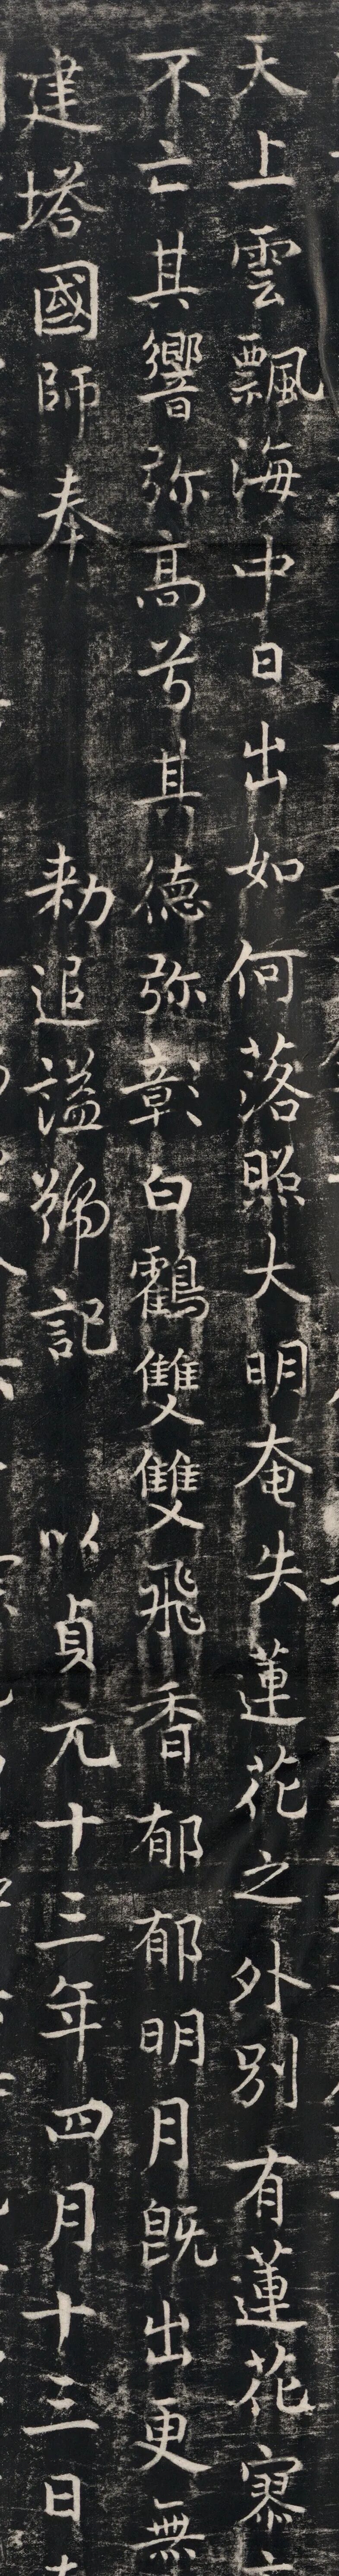 天上雲飄海中日出如何落照大明奄失蓮花之外別有蓮花寥
不亡其響弥高兮其德弥彰白鶴雙雙飛香郁郁明月旣出更無
建塔國師奉勑追謚號記以貞元十三年四月十三日